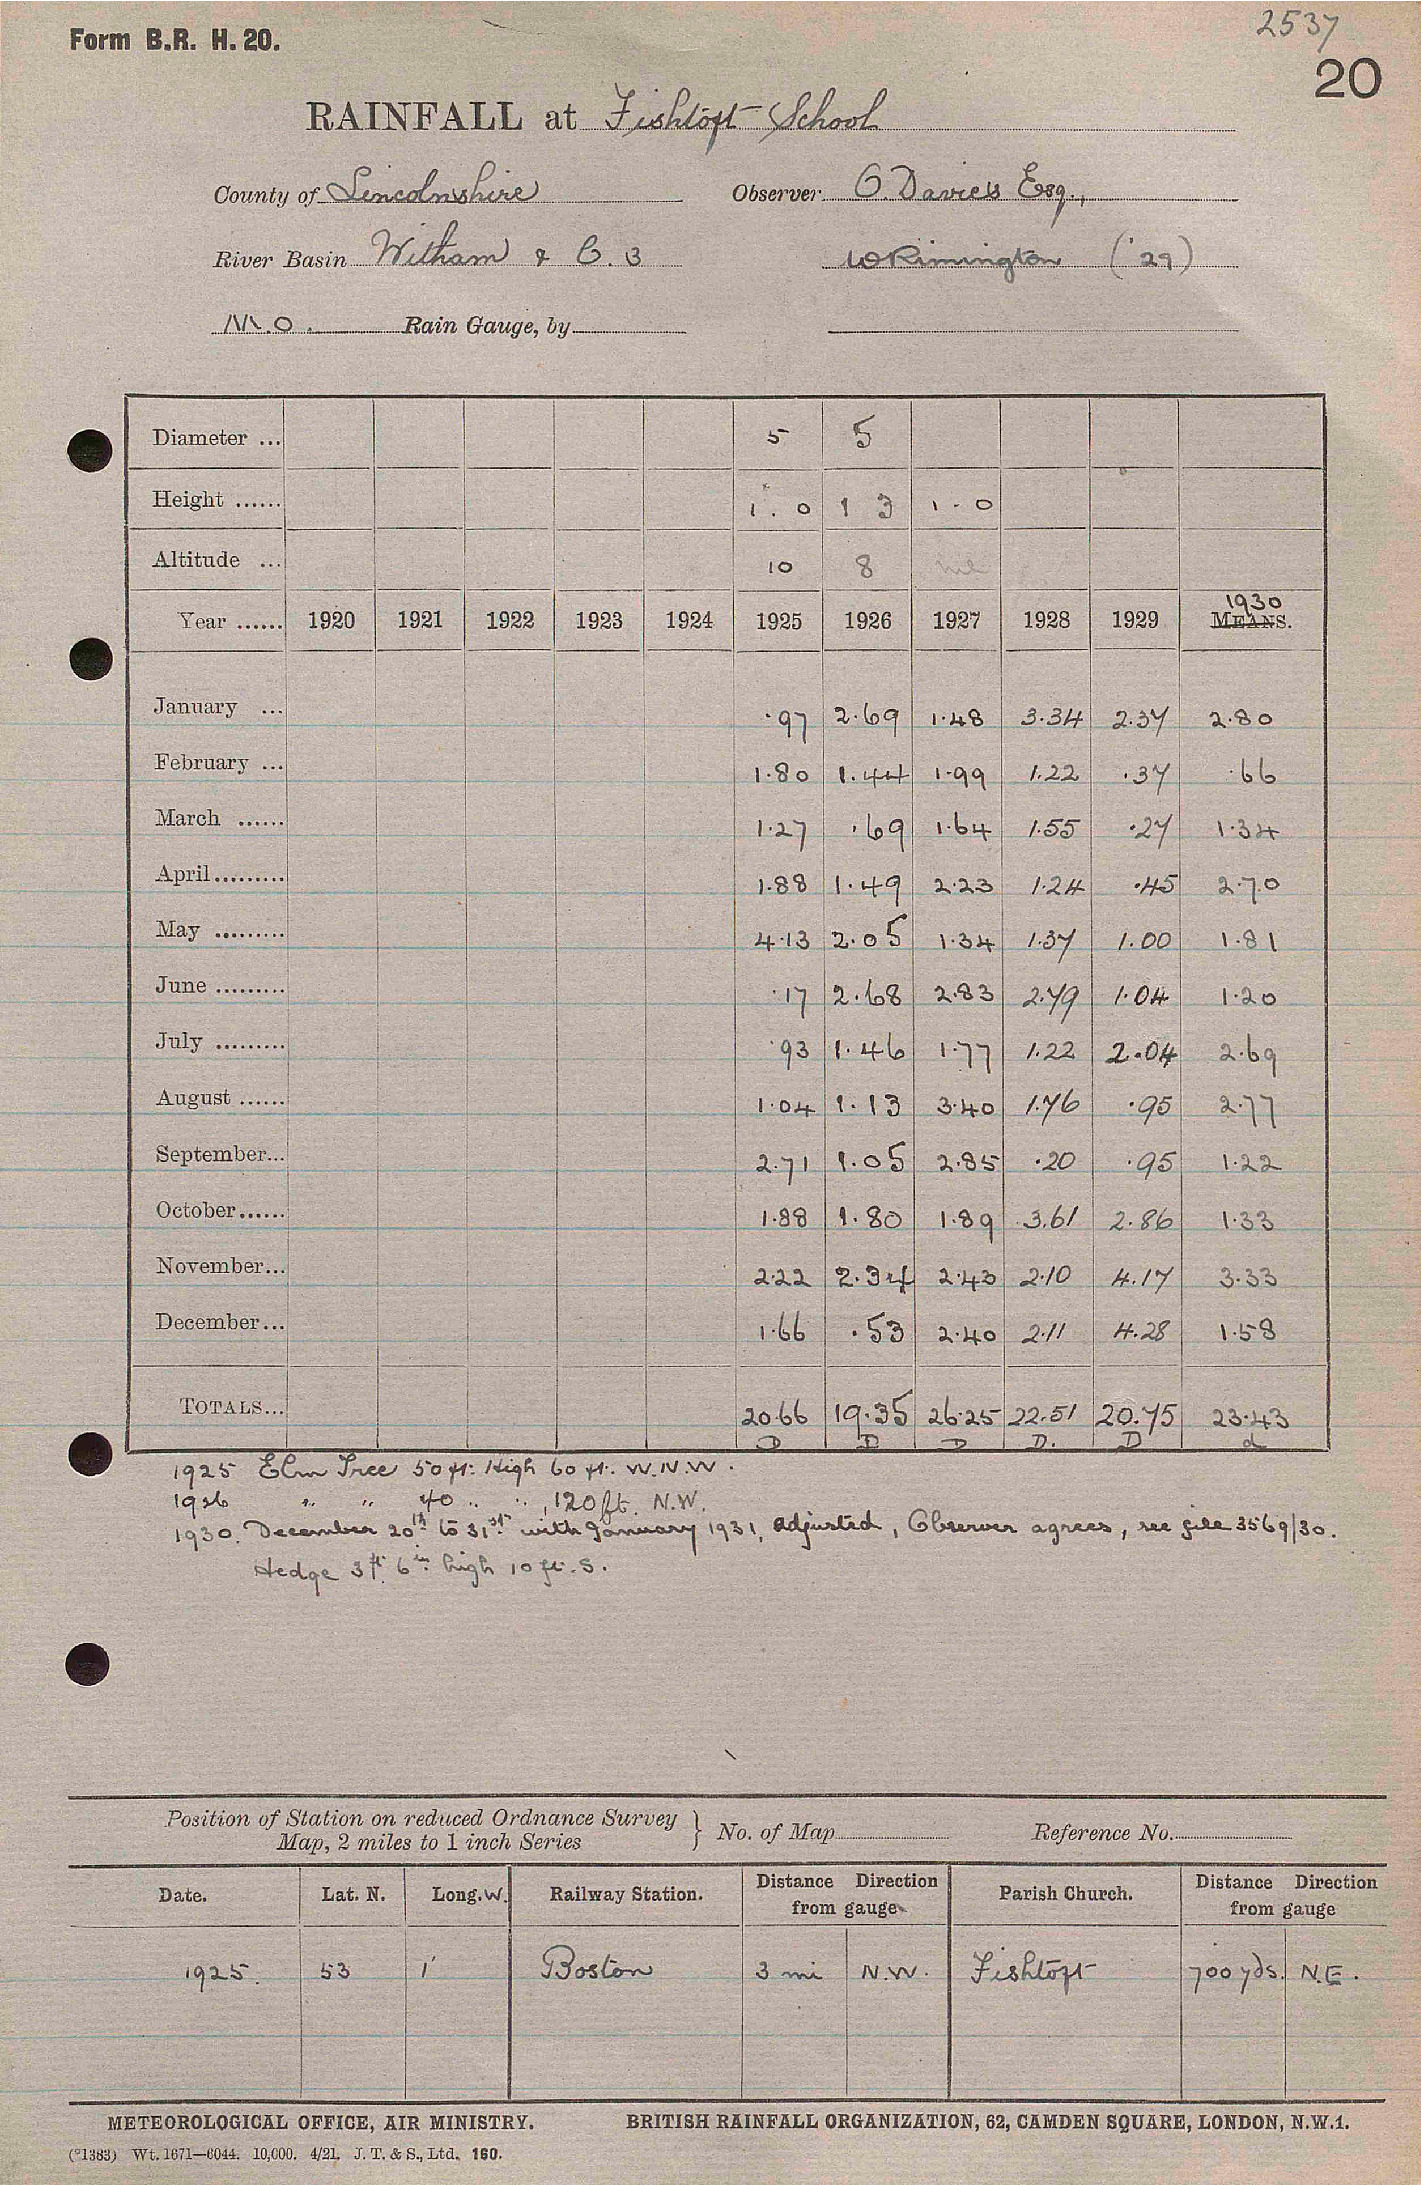 2537
Form B.R. H. 20.
20
RAINFALL at Fishtoft School
County of Lincolnshire Observer O Davies Esq.,
River Basin Witham & C. 3 W Rimington ('29)
M.O. Rain Gauge, by
Diameter ... 5 5
Height ...... 1.0 1 3 1.0
Altitude ... 10 8 nil
1930
Year ...... 1920 1921 1922 1923 1924 1925 1926 1927 1928 1929 MEANS.
January ... .97 2.69 1.48 3.34 2.37 2.80
February ... 1.80 1.44 1.99 1.22 .37 .66
March ...... 1.27 .69 1.64 1.55 .27 1.34
April......... 1.88 1.49 2.23 1.24 .45 2.70
May ......... 4.13 2.05 1.34 1.37 1.00 1.81
June ......... .17 2.68 2.83 2.79 1.04 1.20
July ......... .93 1.46 1.77 1.22 2.04 2.69
August ...... 1.04 1.13 3.40 1.76 .95 2.77
September... 2.71 1.05 2.85 .20 .95 1.22
October...... 1.88 1.80 1.89 3.61 2.86 1.33
November... 2.22 2.34 2.43 2.10 4.17 3.33
December... 1.66 .53 2.40 2.11 4.28 1.58
TOTALS... 20.66 19.35 26.25 22.51 20.75 23.43
D D D D. D d
1925 Elm Tree 50 ft: High 60 ft. W.N.W.
1926 " " 40 " " , 120 ft. N.W.
1930. December 20th to 31st with January 1931, adjusted, Observer agrees, see file 3569/30.
Hedge 3ft. 6in. high 10 ft. S.
Position of Station on reduced Ordnance Survey
Map, 2 miles to 1 inch Series } No. of Map Reference No.
Date. Lat. N. Long. W. Railway Station. Distance Direction from gauge Parish Church. Distance Direction from gauge
1925. 53 1' Boston 3 mi N.W. Fishtoft 700 yds. N.E.
METEOROLOGICAL OFFICE, AIR MINISTRY. BRITISH RAINFALL ORGANIZATION, 62, CAMDEN SQUARE, LONDON, N.W.1.
(*1383) Wt. 1671—6044. 10,000. 4/21. J. T. & S., Ltd. 160.